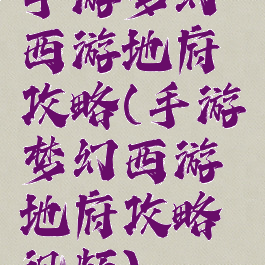 手游梦幻
西游地府
攻略(手游
梦幻西游
地府攻略
视频)